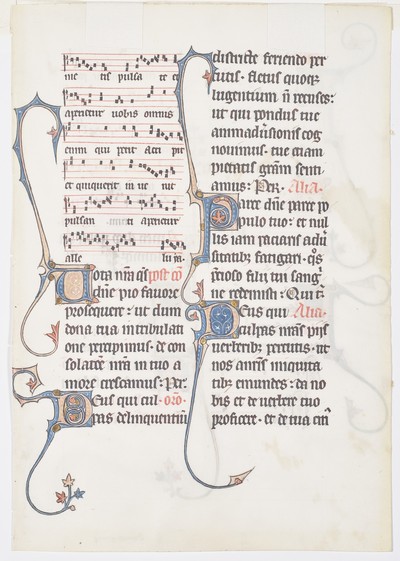 nie tis pulsa te et
aperietur uobis omnis
enim qui petit acci pit
et qui querit in ue nit
pulsan ti aperietur
alle luia.
Uota nr̄a qs̄ post co
dn̄e pio fauore
prosequere: ut dum
dona tua in tribulati
one percipimus. de con
solatōe nr̄a in tuo a
more crescamus: Per.
Deus qui cul. oro.
pas delinquentiū
districte feriendo per
cutis. fletus quoq;
lugentium n̄ recuses:
ut qui pondus tue
animaduˀsionis cog
nouimus. tue etiam
pietatis gr̄am senti
amus: Per. Alia.
Parce dn̄e parce po
pulo tuo: et nul
lis iam paciaris aduˀ
sitatib; fatigari. qͦs
p̄cioso filii tui sang̍
ne redemisti: Qui t̄.
Deus qui Alia.
culpas nr̄as piis
uerberib; percutis. ut
nos a nr̄is iniquita
tib; emundes: da no
bis et de uerbere tuo
proficere. et de tua citi